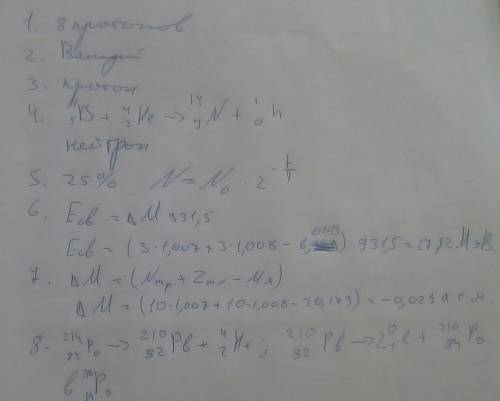 1. 8 протонов
2. Ванадий
3. протон
4. ¹¹₅B + ⁴₂He → ¹⁴₇N + ¹₀n
нейтрон
5. 25% N = N₀ · 2^(-t/T)
6. Eсв = ΔM 931,5
Eсв = (3·1,007+3·1,008 – 6, )·931,5 = 27,82 МэВ
7. ΔM = (Nmp + Zmn – Mя)
ΔM = (10·1,007+10·1,008–20,179) = –0,029 а.е.м.
8. ²¹⁴₈₄Po → ²¹⁰₈₂Pb + ⁴₂He; ²¹⁰₈₂Pb → 2⁰₋₁e + ²¹⁰₈₄Po
в ²¹⁰₈₄Po